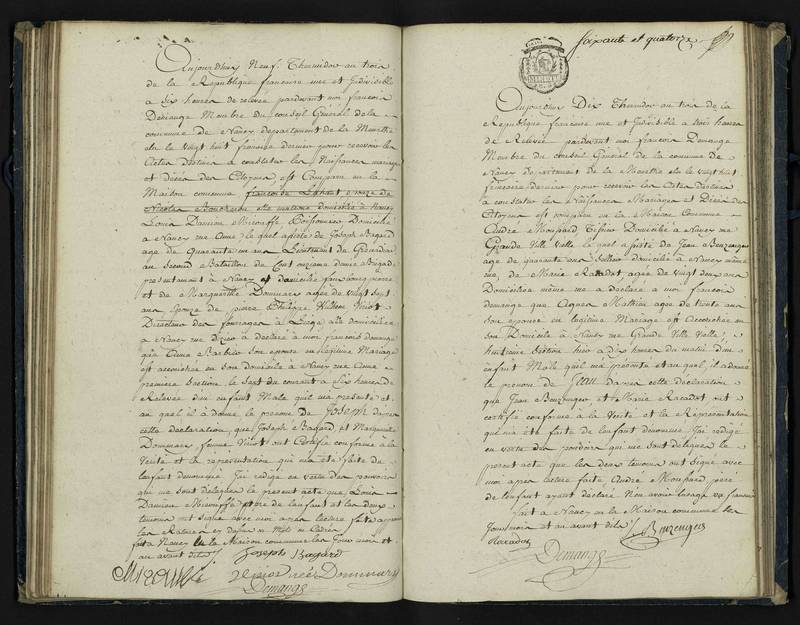 Aujourdhuy Neuf Thermidor an trois
de la République francoise une et Indivisible
a Six heures de relevée pardevant moi francois
Demange Membre du conseil Général de la
commune de Nancy departement de la Meurthe
elu le vingt huit frimaire dernier pour recevoir les
Actes destinés a constater les Naissances mariages
et Décès des Citoyens est Comparu en la
Maison commune
Louis Damien Poissonnier Domicilié
a Nancy rue lequel assisté de Joseph Bagard
age de Quarante un ans Lieutenant de
au Second Bataillon de
presentement a Nancy et domicilié
et de Marguerite Dommary agée de vingt sept
ans Epouse de pierre
Directeur des fourages a Liége elle domiciliée
a Nancy rue a déclaré a moi francois demange
que Anne Barbe son epouse en légitime Mariage
est accouchée en son Domicile a Nancy rue
premiere Section le Sept du courant a Six heures de
Relevée d'un enfant Male quil ma presenté et
au quel il a donné le prenom de Joseph dapres
cette declaration que Joseph Bagard et Marguerite
Dommary femme ont Certifié conforme à la
Verité et la représentation qui ma été faite de
lenfant denommé Jai redigé en vertu des pouvoirs
qui me sont délégués le present acte que Louis
Damien pere de lenfant et les deux
temoins ont signé avec moi apres lecture faite
les Ratures
fait a Nancy en la Maison commune les Jour mois et
an avant dits /. Joseph Bagard
née Dommary
Demange
soixante et quatorze
Aujourdhuy Dix Thermidor an trois de la
République francoise une et Indivisible a trois heures
de Relevée pardevant moi francois Demange
Membre du conseil Général de la commune de
Nancy departement de la Meurthe elu le vingt huit
frimaire dernier pour recevoir les Actes destinés
a constater les Naissances Mariages et Décès des
Citoyens est comparu en la Maison Commune
Andre Domicilié a Nancy rue
Grande Ville Vielle lequel assisté de Jean
age de quarante ans domicilié a Nancy même
rue, de Marie Racadot agée de vingt deux ans
Domiciliée même rue a déclaré a moi francois
demange que Agnes Mathieu agée de trente ans
son epouse en légitime Mariage est Accouchée en
son Domicile a Nancy rue Grande Ville Vielle
huitieme Section hier a dix heures du matin d'un
enfant Male quil ma présenté et au quel il a donné
le prenom de Jean dapres cette déclaration
que Jean et Marie Racadot ont
certifié conforme a la Verité et a la Représentation
qui ma été faite de lenfant denommé Jai redigé
en vertu des pouvoirs qui me sont délégués le
present acte que les deux temoins ont Signé avec
moi apres lecture faite Andre pere
de lenfant ayant déclaré Non avoir lusage
fait a Nancy en la Maison commune les
Jour mois et an avant dits /.
Racadot
Demange